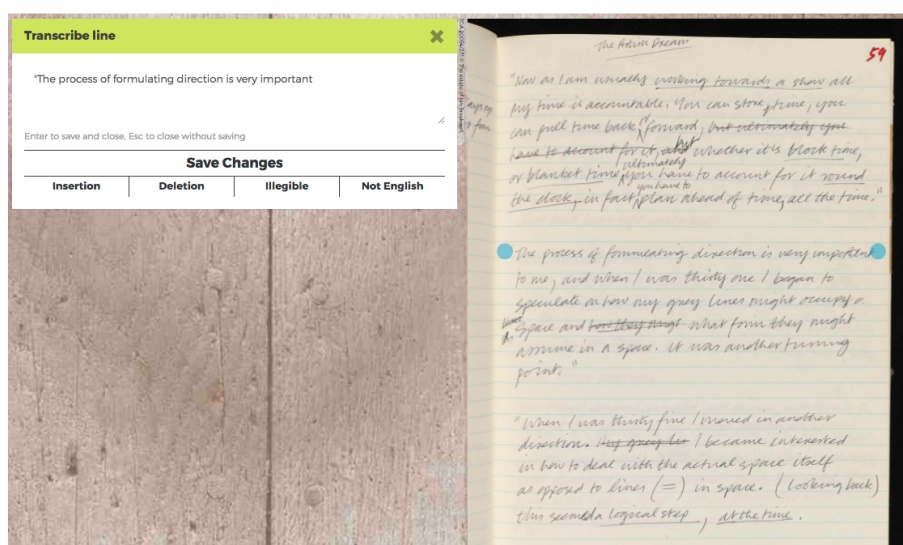 Transcribe line
"The process of formulating direction is very important
Enter to save and close, Esc to close without saving
Save Changes
Insertion Deletion Illegible Not English
The Artists Dream
59
"Now as I am usually working towards a show all
my time is accountable. You can store time, you
can pull time back, forward, but ultimately you
have to account for it, and but whether it is block time,
ultimately
or blanket time, you have to account for it round
you have to
the clock, in fact, plan ahead of time, all the time."
"The process of formulating direction is very important
to me, and when I was thirty one I began to
speculate on how my grey lines might occupy a
space and how they might what form they might
assume in a space. It was another turning
point."
"When I was thirty five I moved in another
direction. My grey I became interested
in how to deal with the actual space itself
as opposed to lines (=) in space. (Looking back)
this seemed a logical step, at the time.